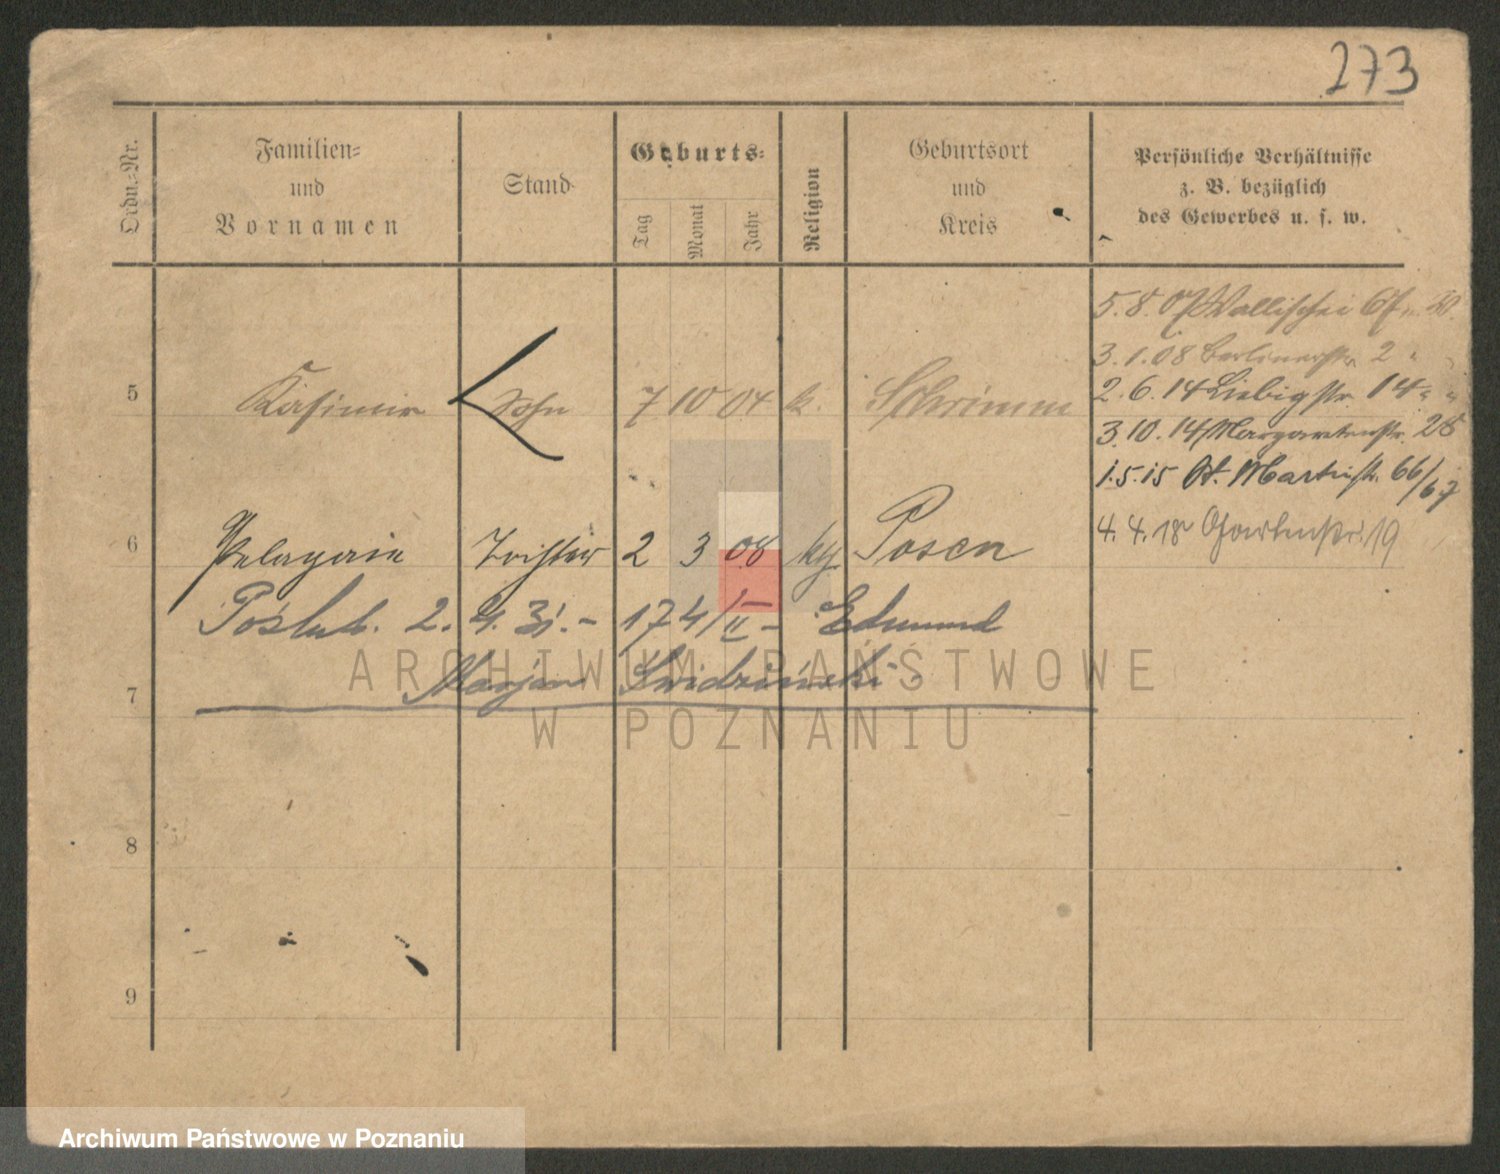 273
Ordn.-Nr.
Familien-
und
Vornamen
Stand
Geburts-
Tag
Monat
Jahr
Religion
Geburtsort
und
Kreis
Persönliche Verhältnisse
z. B. bezüglich
des Gewerbes u. s. w.
5.8.07 Wallischei 67
3.1.08 Berlinerstr. 2 "
2.6.14 Liebigstr. 14 " "
3.10.14 Margaretenstr. 28
1.5.15 St. Martinstr. 66/67
4.4.18 Gartenstr. 19
5 Kasimir Sohn 7 10 04 k. Schrimm
6 Pelagia Tochter 2 3 08 Posen
Poślub. 2.4.31.- 174/II - Edmund
7 Marjan Swidziński.
8
9
ARCHIWUM PAŃSTWOWE
W POZNANIU
Archiwum Państwowe w Poznaniu